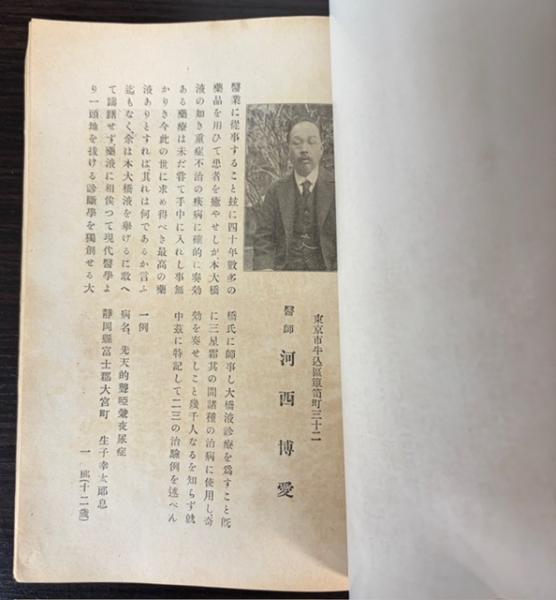 東京市牛込區簞笥町三十二
醫師 河西博愛
醫業に從事すること玆に四十年數多の
藥品を用ひて患者を癒やせしが本大橋
液の如き重症不治の疾病に確的に奏効
ある藥療は未だ甞て手中に入れし事無
かりき今此の世に求め得べき最高の藥
液ありとすれば其れは何であるか言ふ
迄もなく余は本大橋液を擧げるに敢へ
て躊躇せず藥液に相俟つて現代醫學よ
り一頭地を拔ける診斷學を獨創せる大
橋氏に師事し大橋液診療を爲すこと既
に三星霜其の間諸種の治病に使用し奇
効を奏せしこと幾千人なるを知らず就
中玆に特記して二三の治驗例を述べん
一例
病名、先天的聾啞兼夜尿症
靜岡縣富士郡大宮町 生子幸太郎息
一郎(十二歲)